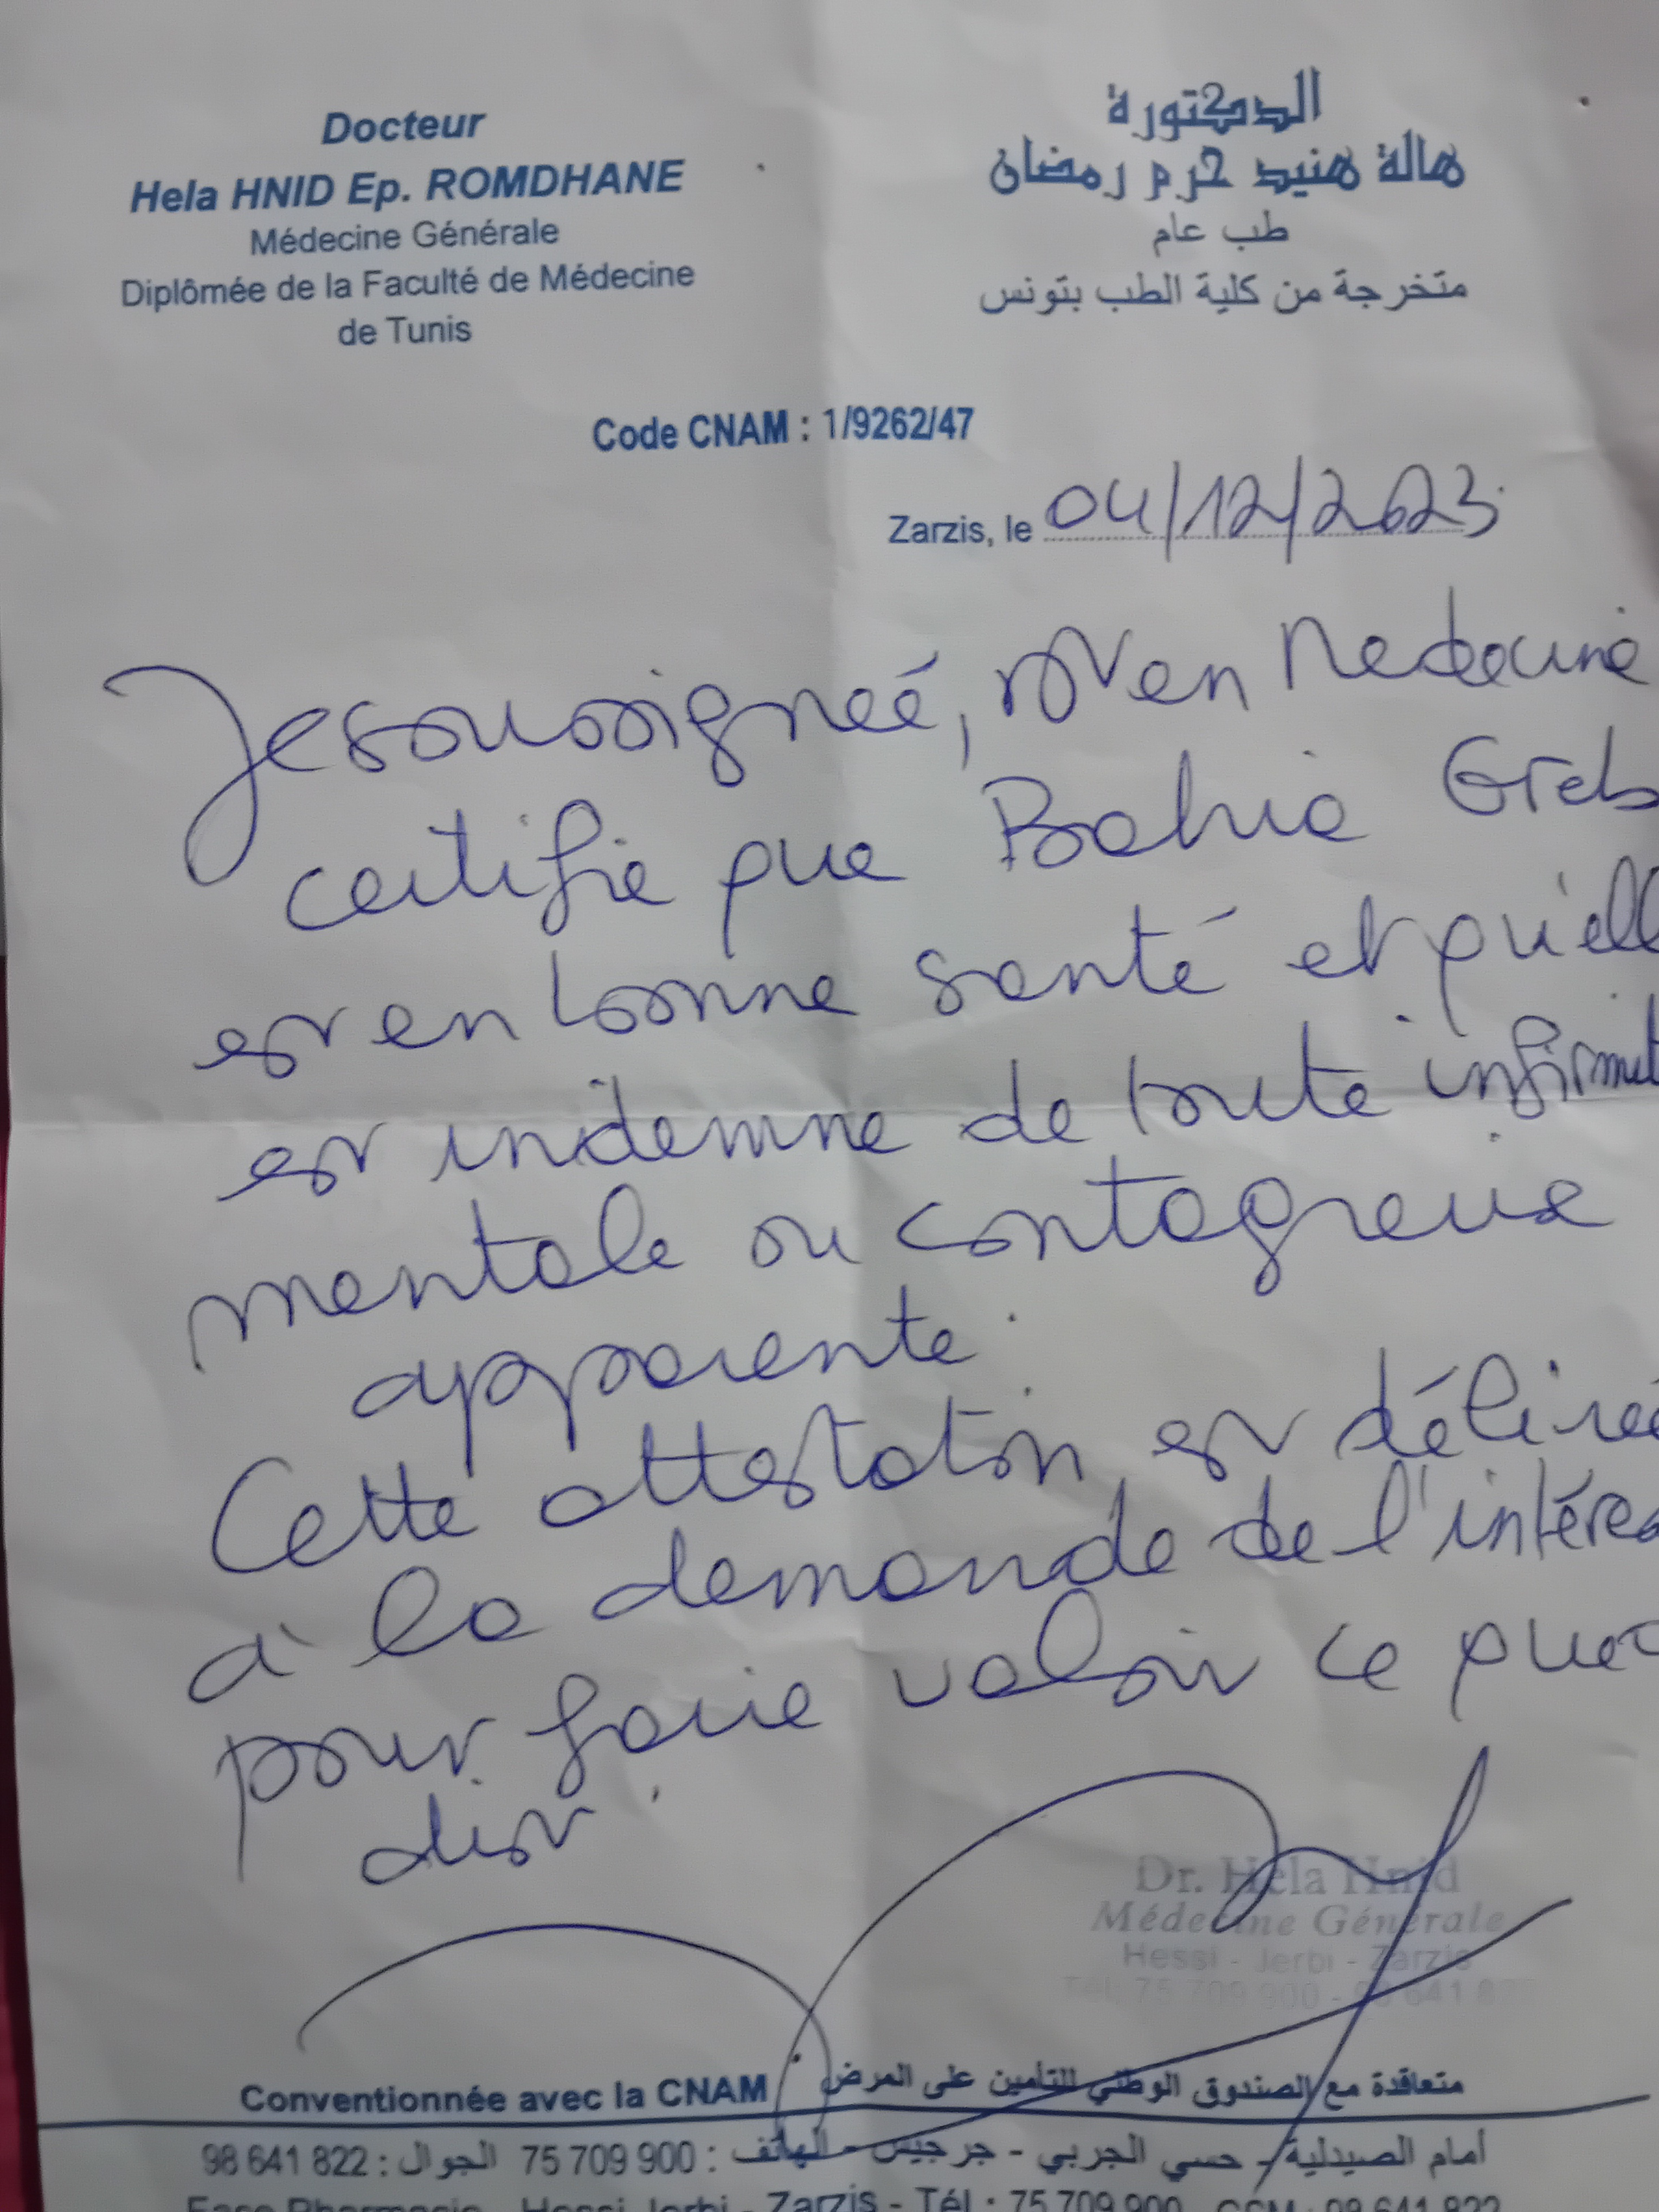 Docteur
Hela HNID Ep. ROMDHANE
Médecine Générale
Diplômée de la Faculté de Médecine
de Tunis
الدكتورة
هالة هنيد حرم رمضان
طب عام
متخرجة من كلية الطب بتونس
Code CNAM : 1/9262/47
Zarzis, le 04/12/2023
Je soussignée, Dr en Medecine
certifie que Bahia Greb
est en bonne santé et qu'ell
est indemne de toute infirmit
mentale ou contagieuse
apparente.
Cette attestation est délivrée
à la demande de l'intéres
pour faire valoir ce que de
droit.
Dr. Hela Hnid
Médecine Générale
Hessi - Jerbi - Zarzis
Tél: 75 709 900 - 98 641 822
Conventionnée avec la CNAM متعاقدة مع الصندوق الوطني للتأمين على المرض
أمام الصيدلية - حسي الجربي - جرجيس - الهاتف : 900 709 75 الجوال : 822 641 98
Face Pharmacie - Hessi Jerbi - Zarzis - Tél : 75 709 900 - GSM : 98 641 822